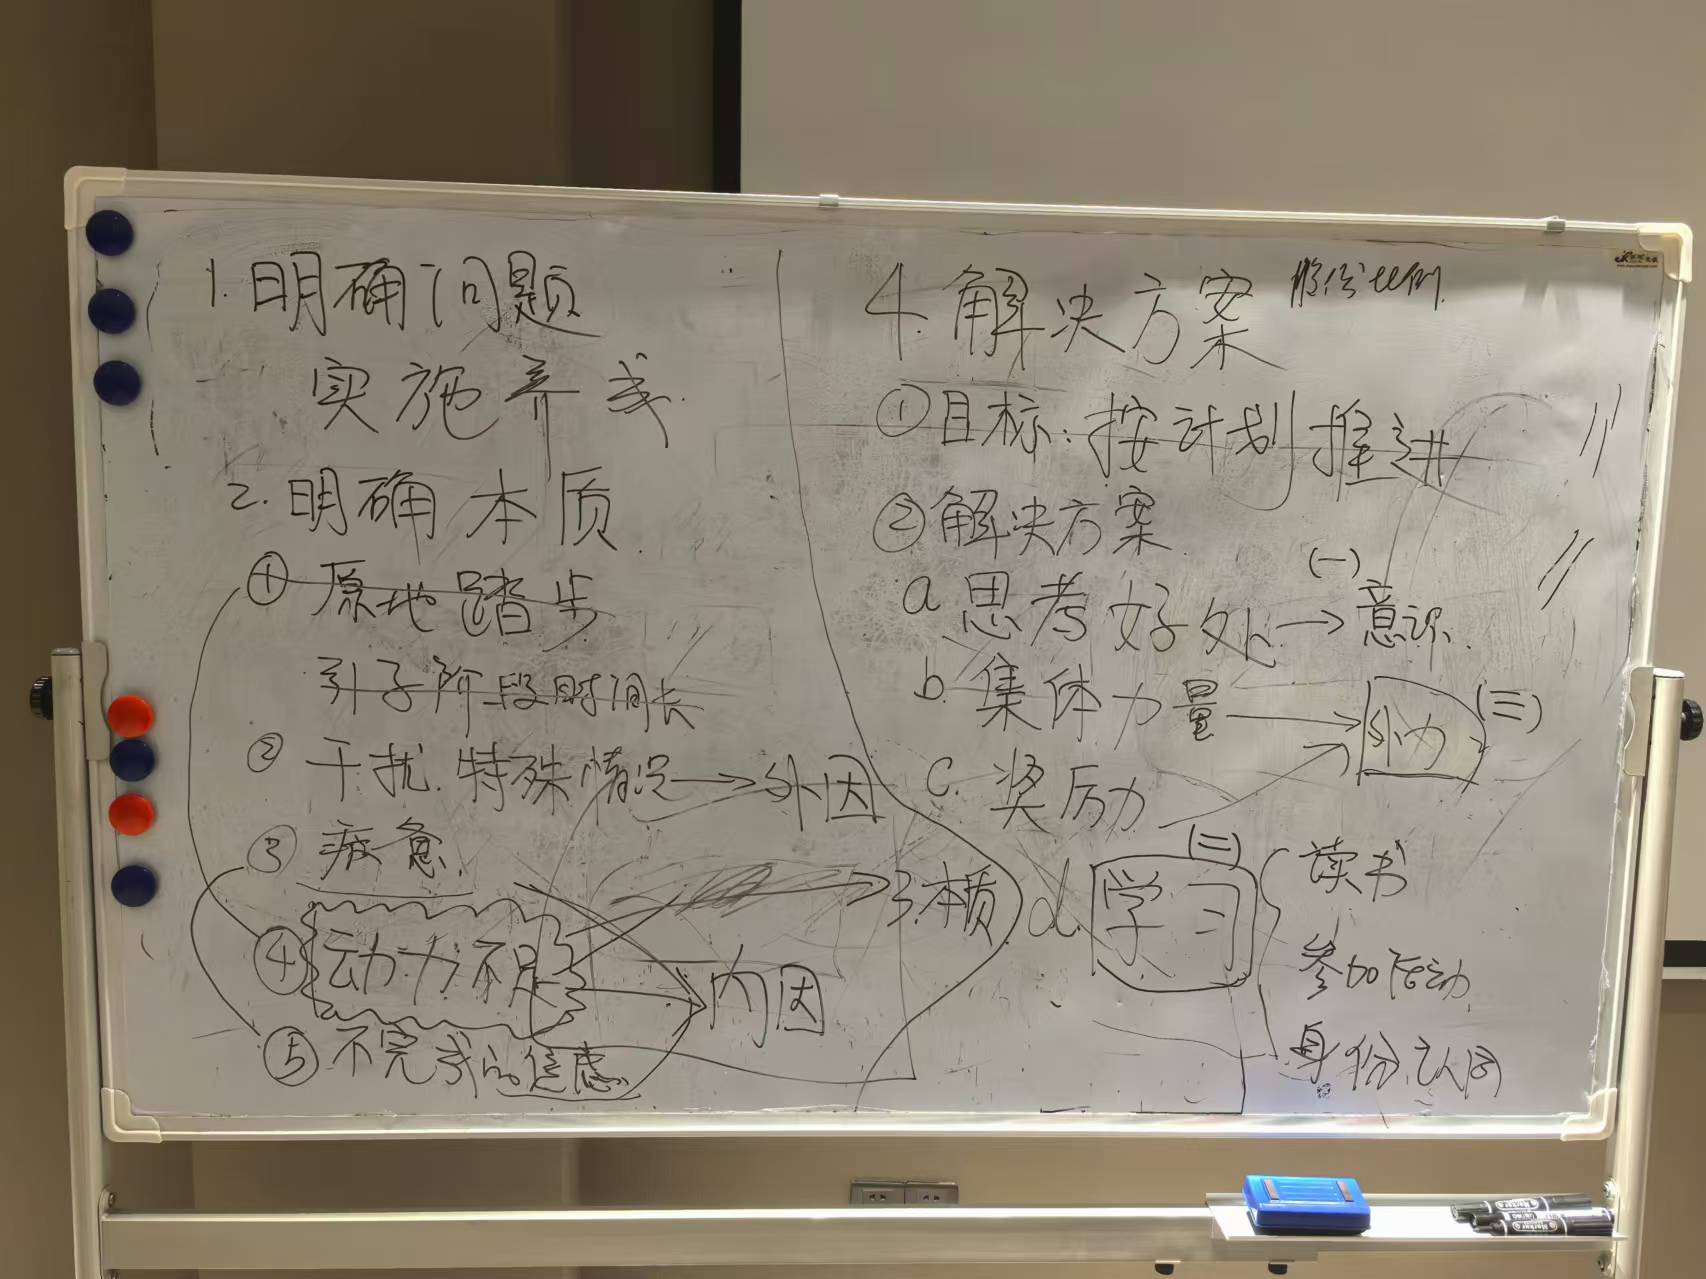 1. 明确问题
实施养成
2. 明确本质
① 原地踏步
引子阶段时间长
② 干扰.特殊情况→外因
③ 疲惫
④ 动力不足→内因
⑤ 不完成的焦虑
3.本质
4. 解决方案
股份比例
① 目标:按计划推进
② 解决方案
a 思考好处→意识
(一)
b. 集体力量→外力
(三)
c. 奖励
d. 学习
(二)
读书
参加活动
身份认同